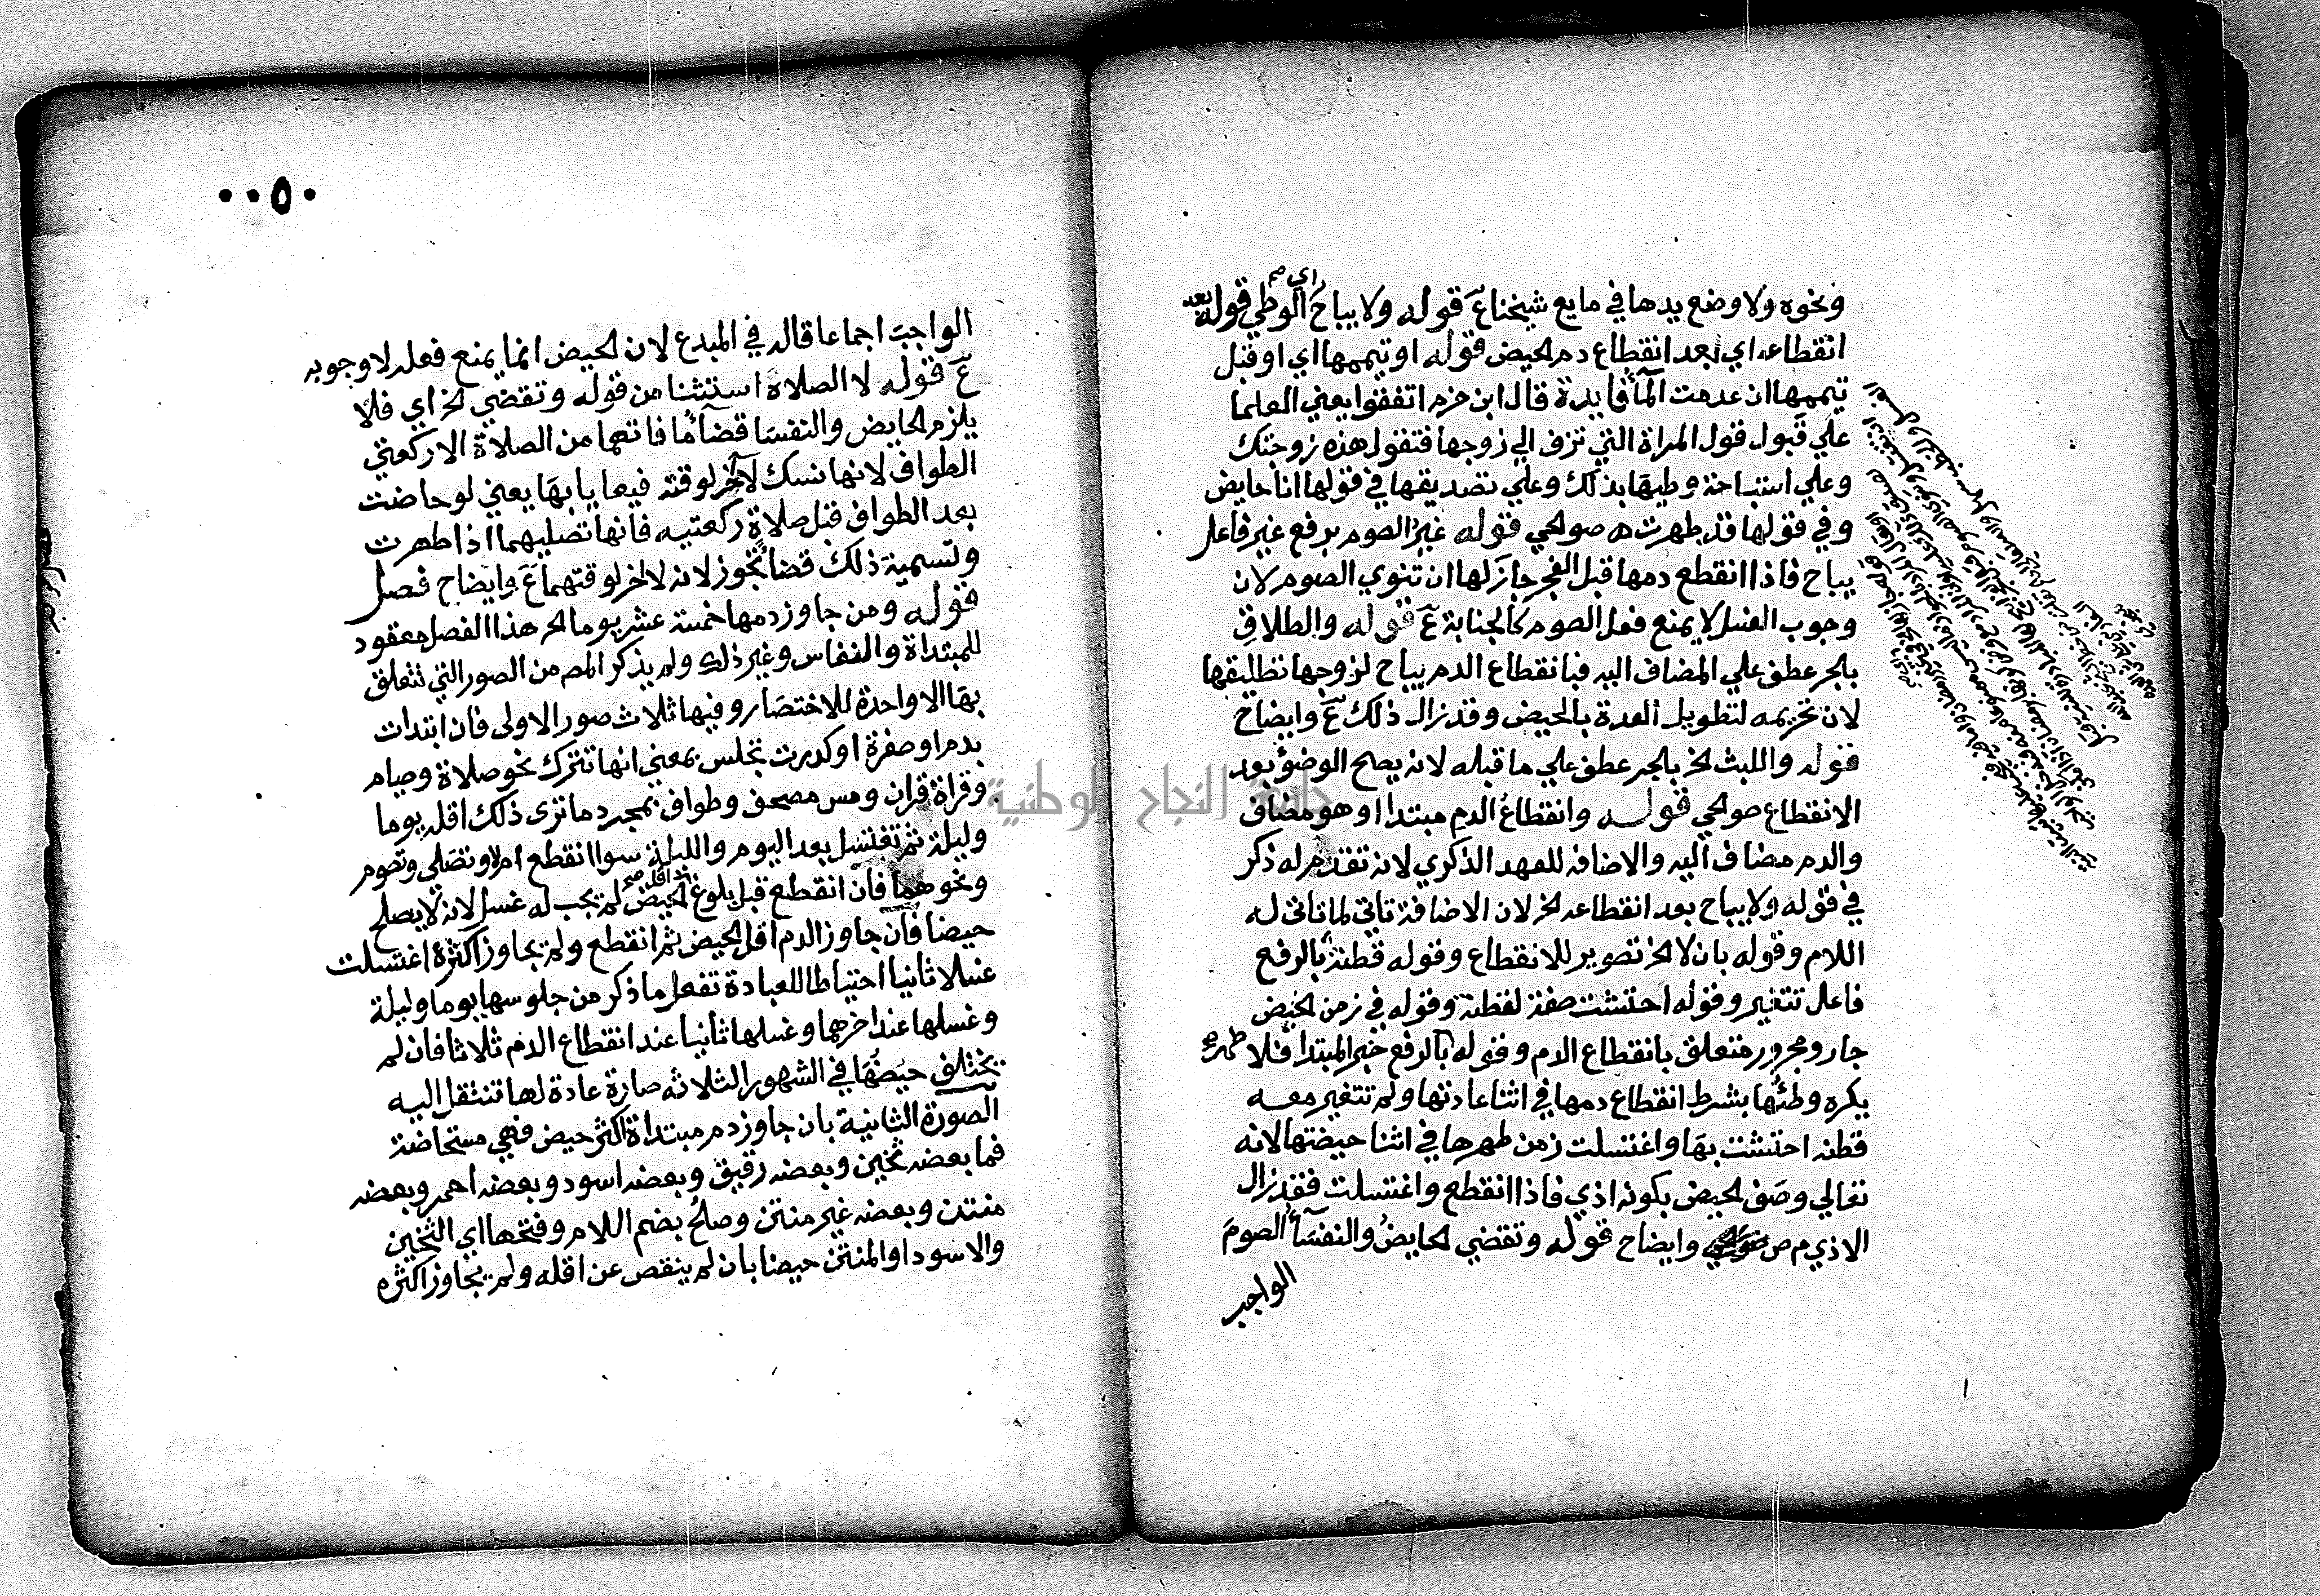 ونحوه ولا وضع يدها في مايع شيخناعَ قوله ولا يباح الوطي قوله بعد
اي صح
انقطاعه اي بعد انقطاع دم الحيض قوله او تيممها اي او قبل
تيممها ان عدمت المآ فايدة قال ابن حزم اتفقوا يعني العلما
علي قبول قول المراة التي تزف الي زوجها فتقول هذه زوجتك
وعلي استباحة وطيها بذلك وعلي تصديقها في قولها انا حايض
وفي قولها قد طهرت ه صولحي قوله غير الصوم برفع غير فاعل
يباح فاذا انقطع دمها قبل الفجر جاز لها ان تنوي الصوم لان
وجوب الغسل لا يمنع فعل الصوم كالجنابة عَ قوله والطلاق
بالجر عطف علي المضاف اليه فبانقطاع الدم يباح لزوجها تطليقها
لان تحريمه لتطويل العدة بالحيض وقد زال ذلك عَ وايضاح
قوله واللبث الخ بالجر عطف علي ما قبله لانه يصح الوضؤ بعد
الانقطاع صولحي قوله وانقطاعُ الدم مبتدا وهو مضاف
والدم مضاف اليه والاضافه للعهد الذكري لانه تقدم له ذكر
في قوله ولا يباح بعد انقطاعه الخ لان الاضافة تاتي لما تاتي له
اللام وقوله بان لا الخ تصوير للانقطاع وقوله قطنة بالرفع
فاعل تتغير وقوله احتشت صفة لقطنة وقوله في زمن الحيض
جار ومجرور متعلق بانقطاع الدم وقوله بالرفع خبر المبتدا فلا
يكره وطئها بشرط انقطاع دمها في اثنا عادتها ولم تتغير معه
قطنه احتشت بها واغتسلت زمن طهرها في اثنا حيضتها لانه
تعالي وصف الحيض بكونه اذي فاذا انقطع واغتسلت فقد زال
الاذي م ص وايضاح قوله وتقضي الحايضُ والنفسآُ الصومَ
الواجب
٠٠٥٠
الواجبَ اجماعا قاله في المبدع لان الحيض انما يمنع فعله لا وجوبه
عَ قوله لا الصلاة استثنا من قوله وتقضي الخ اي فلا
يلزم الحايض والنفسا قضآ ما فاتهما من الصلاة الا ركعتي
الطواف لانها نسك لا آخر لوقته فيعايا بها يعني لو حاضت
بعد الطواف قبل صلاة ركعتيه فانها تصليهما اذا طهرت
وتسمية ذلك قضا تجوز لانه لا اخر لوقتهما عَ وايضاح فصل
قوله ومن جاوز دمها خمسة عشر يوما الخ هذا الفصل معقود
للمبتداة والنفاس وغير ذلك ولم يذكر المص من الصور التي تتعلق
بها الا واحدة للاختصار وفيها ثلاث صور الاولى فان ابتدات
بدم او صفرة او كدرت تجلس بمعني انها تترك نحو صلاة وصيام
وقراة قران ومس مصحف وطواف بمجرد ما تري ذلك اقله يوما
وليلة ثم تغتسل بعد اليوم والليلة سوا انقطع ام لا وتصلي وتصوم
ونحوهما فان انقطع قبل بلوغ اقل الحيض لم يجب له غسل لانه لا يصلح
حيضا فان جاوز الدم اقل الحيض ثم انقطع ولم يجاوز اكثره اغتسلت
غسلا ثانيا احتياطا للعبادة تفعل ما ذكر من جلوسها يوما وليلة
وغسلها عند اخرهما وغسلها ثانيا عند انقطاع الدم ثلاثا فان لم
يختلف حيضها في الشهور الثلاثه صارة عادة لها تنتقل اليه
الصورة الثانية بان جاوز دم مبتداة اكثر حيض فهي مستحاضة
فما بعضه ثخين وبعضه رقيق وبعضه اسود وبعضه احمر وبعضه
منتن وبعضه غير منتن وصلح بضم اللام وفتحها اي الثخين
والاسود او المنتن حيضا بان لم ينقص عن اقله ولم يجاوز اكثره
جامعة النجاح الوطنية